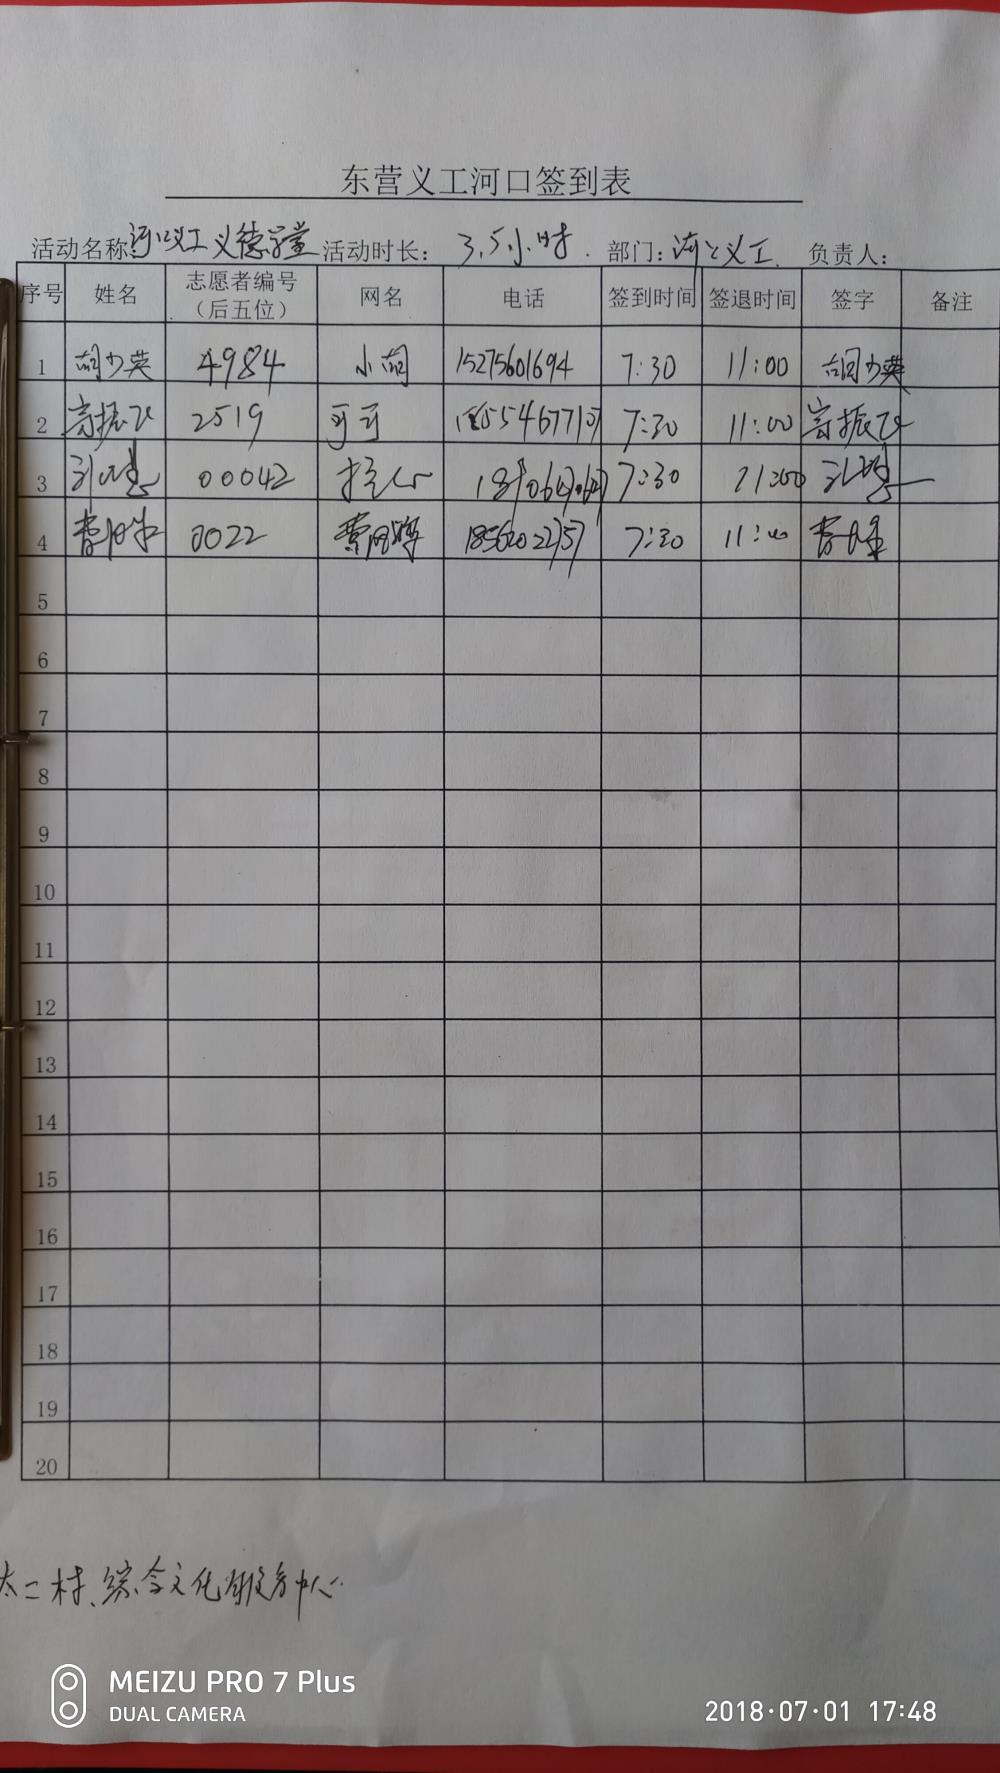 东营义工河口签到表
活动名称 河口义工义德学堂 活动时长： 3.5小时. 部门：河口义工 负责人：
序号 姓名 志愿者编号（后五位） 网名 电话 签到时间 签退时间 签字 备注
1 胡少英 4984 小胡 15275601694 7:30 11:00 胡少英
2 振飞 2519 可可 7:30 11:00 振飞
3 00042 7:30 11:00
4 0022 7:30 11:00
5
6
7
8
9
10
11
12
13
14
15
16
17
18
19
20
太二村、综合文化服务中心
MEIZU PRO 7 Plus
DUAL CAMERA
2018·07·01 17:48